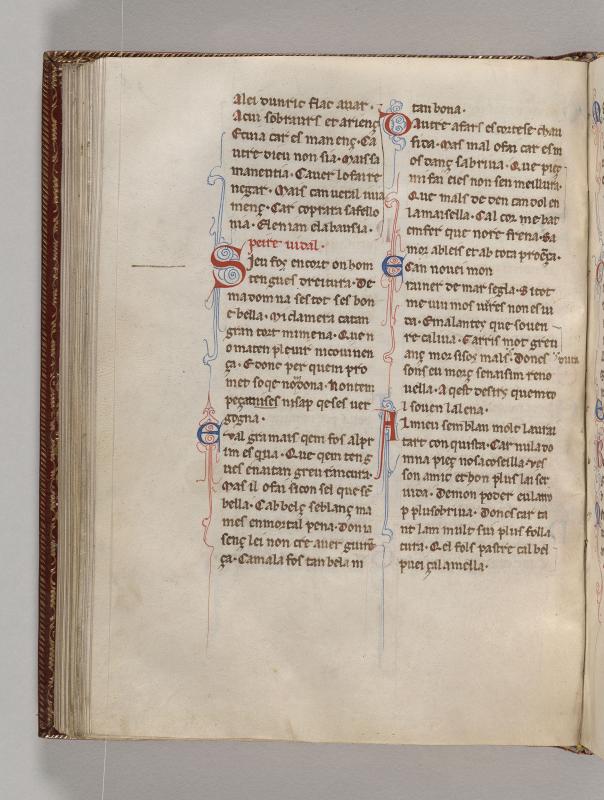 Alei vunric flac auar.
A cui sobrauts et arienç
E tuia car es man enç. Ca
utre dieu non sia. Mais sa
manentia. Cauer lo faire
negar. Mais can ueral iuia
menç. Car coprara sa fello
nia. Elenian elabausia.
peire uidal.
S ieu fos en cort on hom
tengues dreitura. De
ma dom na ses tot ses bon
e bella. Mi clamera catan
gran tort mi mena. Que n
o maten pleuir ni couinen
ça. E donc per quem pro
met so qe no dona. Non tem
peçat ni ses ni sap qe ses uer
gogna.
E ual gra mais qem fos al pr
im es qiua. Que qem teng
ues en aitan greu rancura.
Mas il o fai si con sel que se
bella. Cab belç seblanç ma
mes en mortal pena. Don ia
senç lei non cre auer guire
ça. Ca mala fos tan bela ni
tan bona.
D autre afars es cortese chau
sida. Mas mal o fai car es m
os danç sabriua. Que pieç
mi fai e ies non sen meillura.
Que mals de den can dol en
la maisella. Cal cor me bat
en fer que nore frena. Sa
mor ab leis et ab tota proeça.
E can no uei mon
rainer de mar segla. Si tot
me uiu mos uires non es ui
da. E malautes que souen
re caliua. Garris mot greu
anç mor si sos mals dura. Doncs
sons eu morç s enaisim reno
uella. Aqest desirs que m to
l souen lalena.
A l mieu semblan molt laurai
tart conquista. Car nula do
mna pieç nosa coseilla. ves
son amic et hon plus lai ser
uida. De mon poder eu lam o
p plus obriua. Doncs car ta
nt lam mult sui plus folla
tura. Qel fols pastre cal bel
puei çalamella.